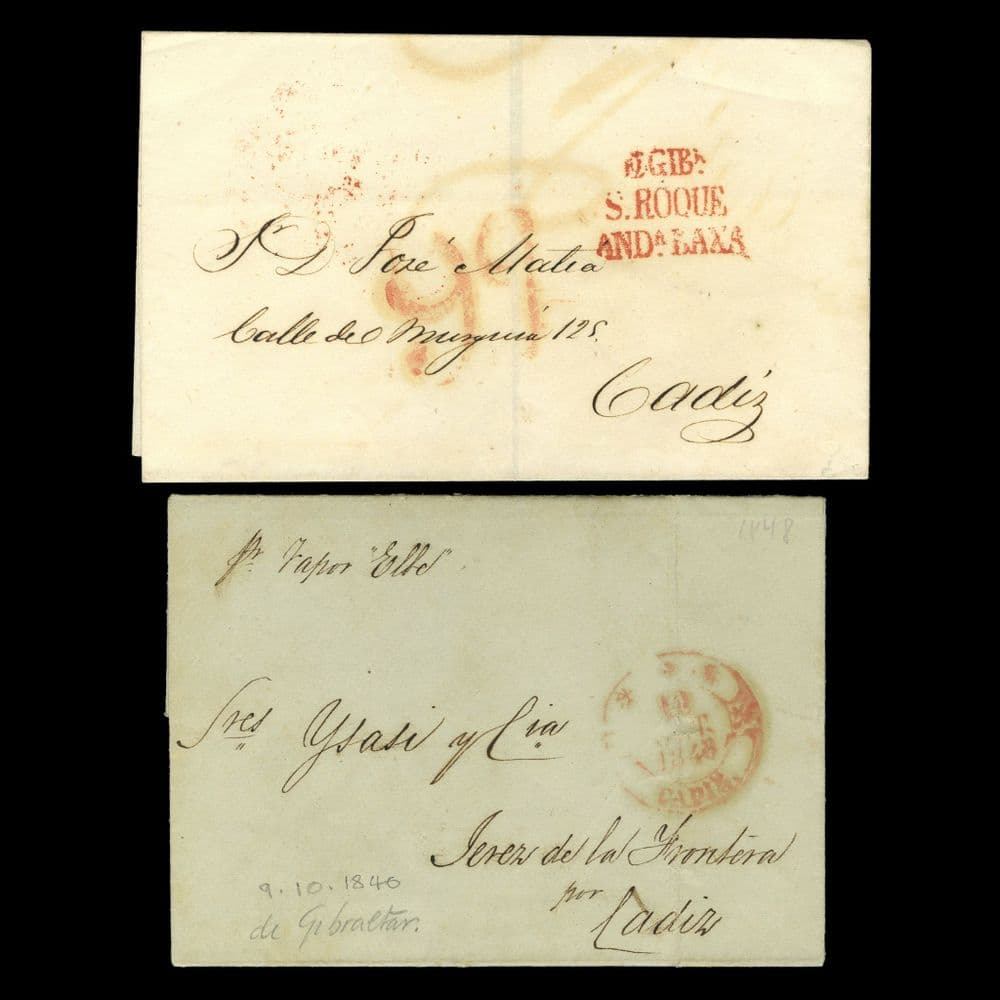 Sr D José Matia
Calle de Murguia 125.
Cadiz
S. ROQUE
ANDA BAXA
1848
pr Vapor "Elbe"
Sres Ysasi y Cia
1848
CADIZ
Jerez de la Frontera
por
Cadiz
9.10.1840
de Gibraltar.